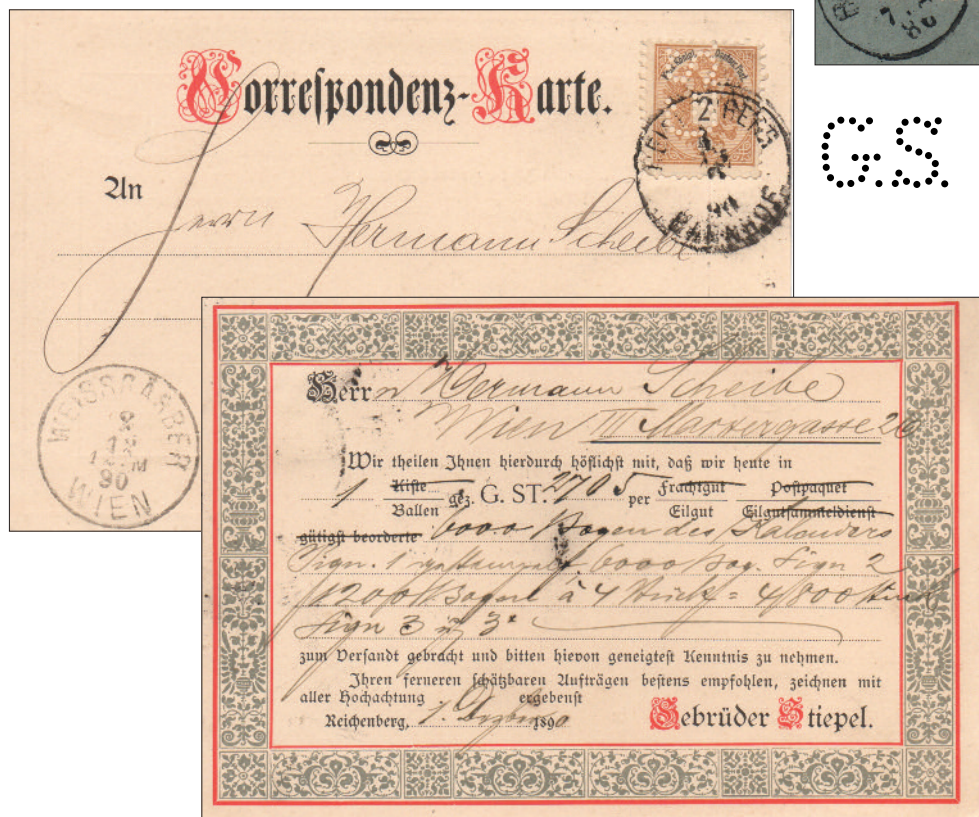 Correspondenz-Karte.
An
Herrn Hermann Scheibe
2
REICHENBERG
90
BAHNHOF
WEISSGÄRBER
WIEN
90
G.S.
7
Herrn Hermann Scheibe
Wien III Marxergasse 26
Wir theilen Ihnen hierdurch höflichst mit, daß wir heute in
1 Kiste Ballen gez. G. ST. 2705 per Frachtgut Eilgut Postpaquet Eilgutsammeldienst
gütigst beorderte 6000 Bogen des Kalenders
Sign. 1 6000 Bog. Sign 2
1200 Bogen à 4 Stück = 4800 Stück
Sign 3 u 3*
zum Versandt gebracht und bitten hievon geneigtest Kenntnis zu nehmen.
Ihren ferneren schätzbaren Aufträgen bestens empfohlen, zeichnen mit
aller Hochachtung ergebenst
Reichenberg, 1. Dezbr 1890 Gebrüder Stiepel.